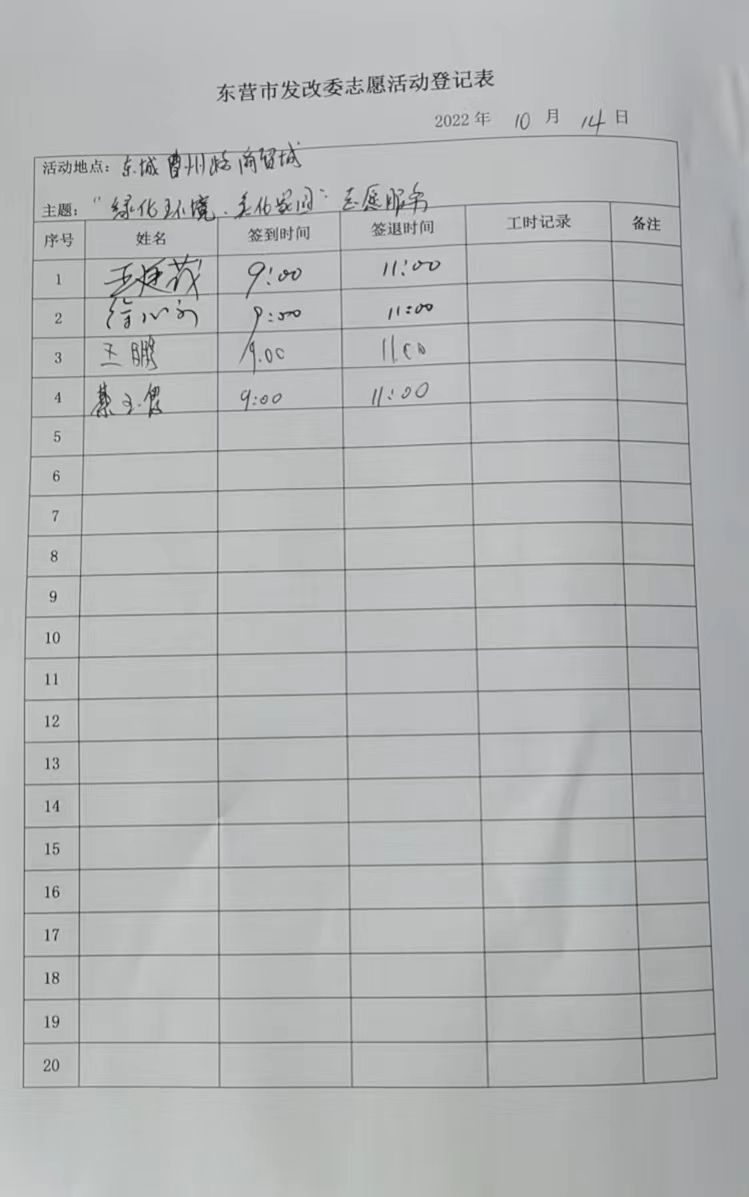 东营市发改委志愿活动登记表
2022年 10 月 14 日
活动地点：东城曹州路商贸城
主题："绿化环境·美化家园"志愿服务
序号 姓名 签到时间 签退时间 工时记录 备注
1 9:00 11:00
2 徐 9:00 11:00
3 王鹏 9:00 11:00
4 9:00 11:00
5
6
7
8
9
10
11
12
13
14
15
16
17
18
19
20